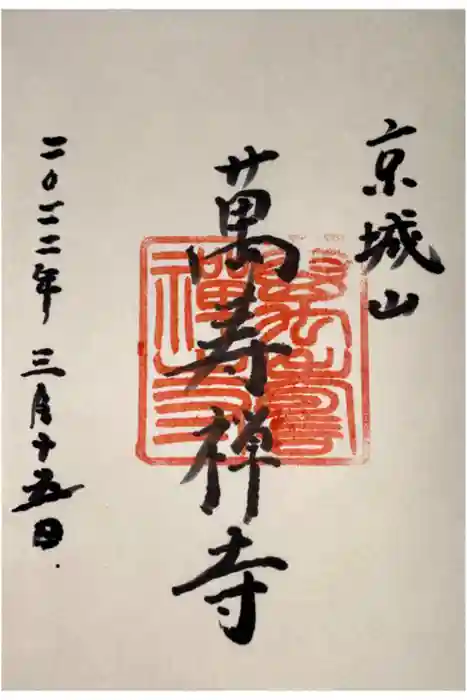 京城山
萬寿禅寺
二〇二二年 三月十五日
萬壽
禪寺